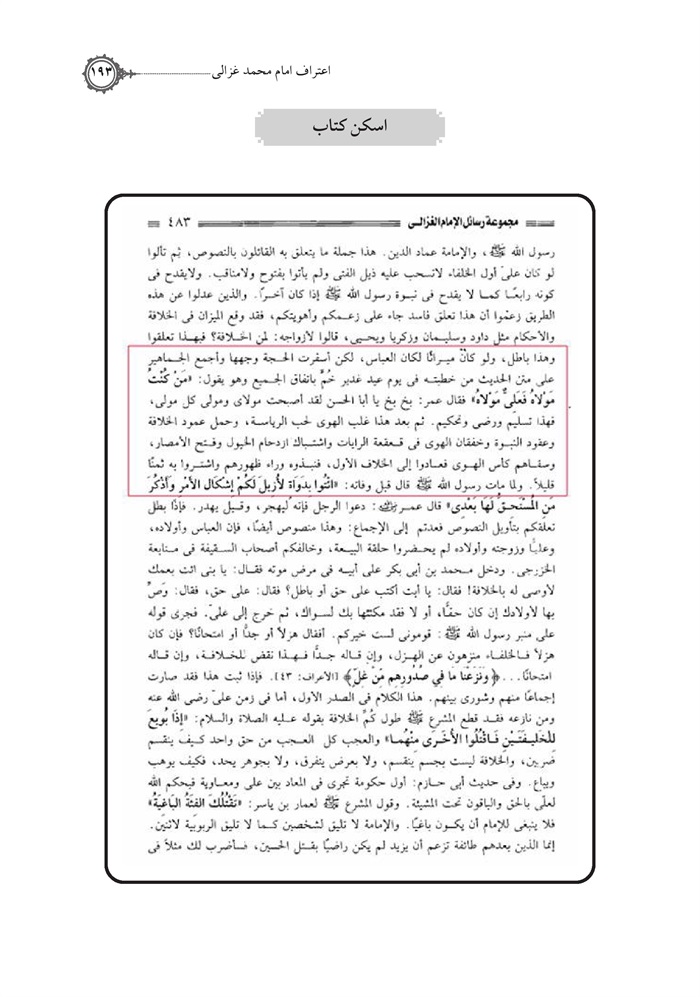 اعتراف امام محمد غزالی ۱۹۳
اسکن کتاب
مجموعة رسائل الإمام الغزالـى ٤٨٣
رسول الله ﷺ، والإمامة عماد الدين. هذا جملة ما يتعلق به القائلون بالنصوص، ثم تألوا
لو كان علىّ أول الخلفاء لانسحب عليه ذيل الفتى ولم يأتوا بفتوح ولامناقب. ولايقدح فى
كونه رابعًا كما لا يقدح فى نبوة رسول الله ﷺ إذا كان آخـرًا. والذين عدلوا عن هذه
الطريق زعمُوا أن هذا تعلق فاسد جاء على زعـمكم وأهويتكم، فقد وقع الميزان فى الخلافة
والأحكام مثل داود وسليمان وزكريا ويحيى، قالوا لأزواجه: لمن الخلافة؟ فبهذا تعلقوا
وهذا باطل، ولو كان ميراثًا لكان العباس، لكن أسفرت الحجة وجهها وأجمع الجماهير
على متن الحديث من خطبته فى يوم عيد غدير خُمٌ باتفاق الجميع وهو يقول: «مَنْ كُنْتُ
مَوْلاهُ فَعَلِىٌّ مَوْلاهُ» فقال عمر: بخ بخ يا أبا الحسن لقد أصبحت مولاى ومولى كل مولى،
فهذا تسليم ورضى وتحكيم. ثم بعد هذا غلب الهوى لحب الرياسة، وحمل عمود الخلافة
وعقود النبوة وخفقان الهوى فى قعقعة الرايات واشتباك ازدحام الخيول وفتح الأمصار،
وسقاهم كأس الهوى فعادوا إلى الخلاف الأول، فنبذوه وراء ظهورهم واشتروا به ثمنًا
قليلاً. ولما مات رسول الله ﷺ قال قبل وفاته: «ائْتُوا بِدَوَاة لأُزيلَ لَكُمْ إشْكَال الأمْر وَأَذْكُرَ
مَنِ الْمُسْتَحقُّ لَهَا بَعْدِى» قال عمر: دعوا الرجل فإنه ليهجر، وقيل يهدر. فإذًا بطل
تعلقكم بتأويل النصوص فعدتم إلى الإجماع: وهذا منصوص أيضًا، فإن العباس وأولاده،
وعليًا وزوجته وأولاده لم يحضروا حلقة البيعة، وخالفكم أصحاب السقيفة فى متابعة
الخزرجى. ودخل محمد بن أبى بكر على أبيه فى مرض موته فقال: يا بنى ائت بعمك
لأوصى له بالخلافة! فقال: يا أبت أكنت على حق أو باطل؟ فقال: على حق، فقال: وَصِّ
بها لأولادك إن كان حقًا، أو لا فقد مكنتها بك لسواك، ثم خرج إلى علىّ. فجرى قوله
على منبر رسول الله ﷺ: قومونى لست خيركم. أفقال هزلاً أو جدًا أو امتحانًا؟ فإن كان
هزلاً فالخلفاء منزهون عن الهزل، وإن قاله جدًا فهذا نقض للخلافة، وإن قاله
امتحانًا... ﴿وَنَزَعْنَا مَا فِي صُدُورِهِم مِّنْ غِلٍّ﴾ [الأعراف: ٤٣]. فإذا ثبت هذا فقد صارت
إجماعًا منهم وشورى بينهم. هذا الكلام فى الصدر الأول، أما فى زمن علىّ رضى الله عنه
ومن نازعه فقد قطع المشرع ﷺ طول كُمِّ الخلافة بقوله عليه الصلاة والسلام: «إذَا بُويِعَ
للْخَليفَتَيْنِ فَاقْتُلُوا الأُخْرَى مِنْهُمَا» والعجب كل العجب من حق واحد كيف ينقسم
ضربين، والخلافة ليست بجسم ينقسم، ولا بعرض يتفرق، ولا بجوهر يحد، فكيف يوهب
ويباع. وفى حديث أبى حازم: أول حكومة تجرى فى المعاد بين على ومعاوية فيحكم الله
لعلّى بالحق والباقون تحت المشيئة. وقول المشرع ﷺ لعمار بن ياسر: «تَقْتُلُكَ الفِئَةُ البَاغِيَةُ»
فلا ينبغى للإمام أن يكون باغيًا. والإمامة لا تليق لشخصين كما لا تليق الربوبية لاثنين.
إنما الذين بعدهم طائفة تزعم أن يزيد لم يكن راضيًا بقتل الحسين، فسأضرب لك مثلاً فى